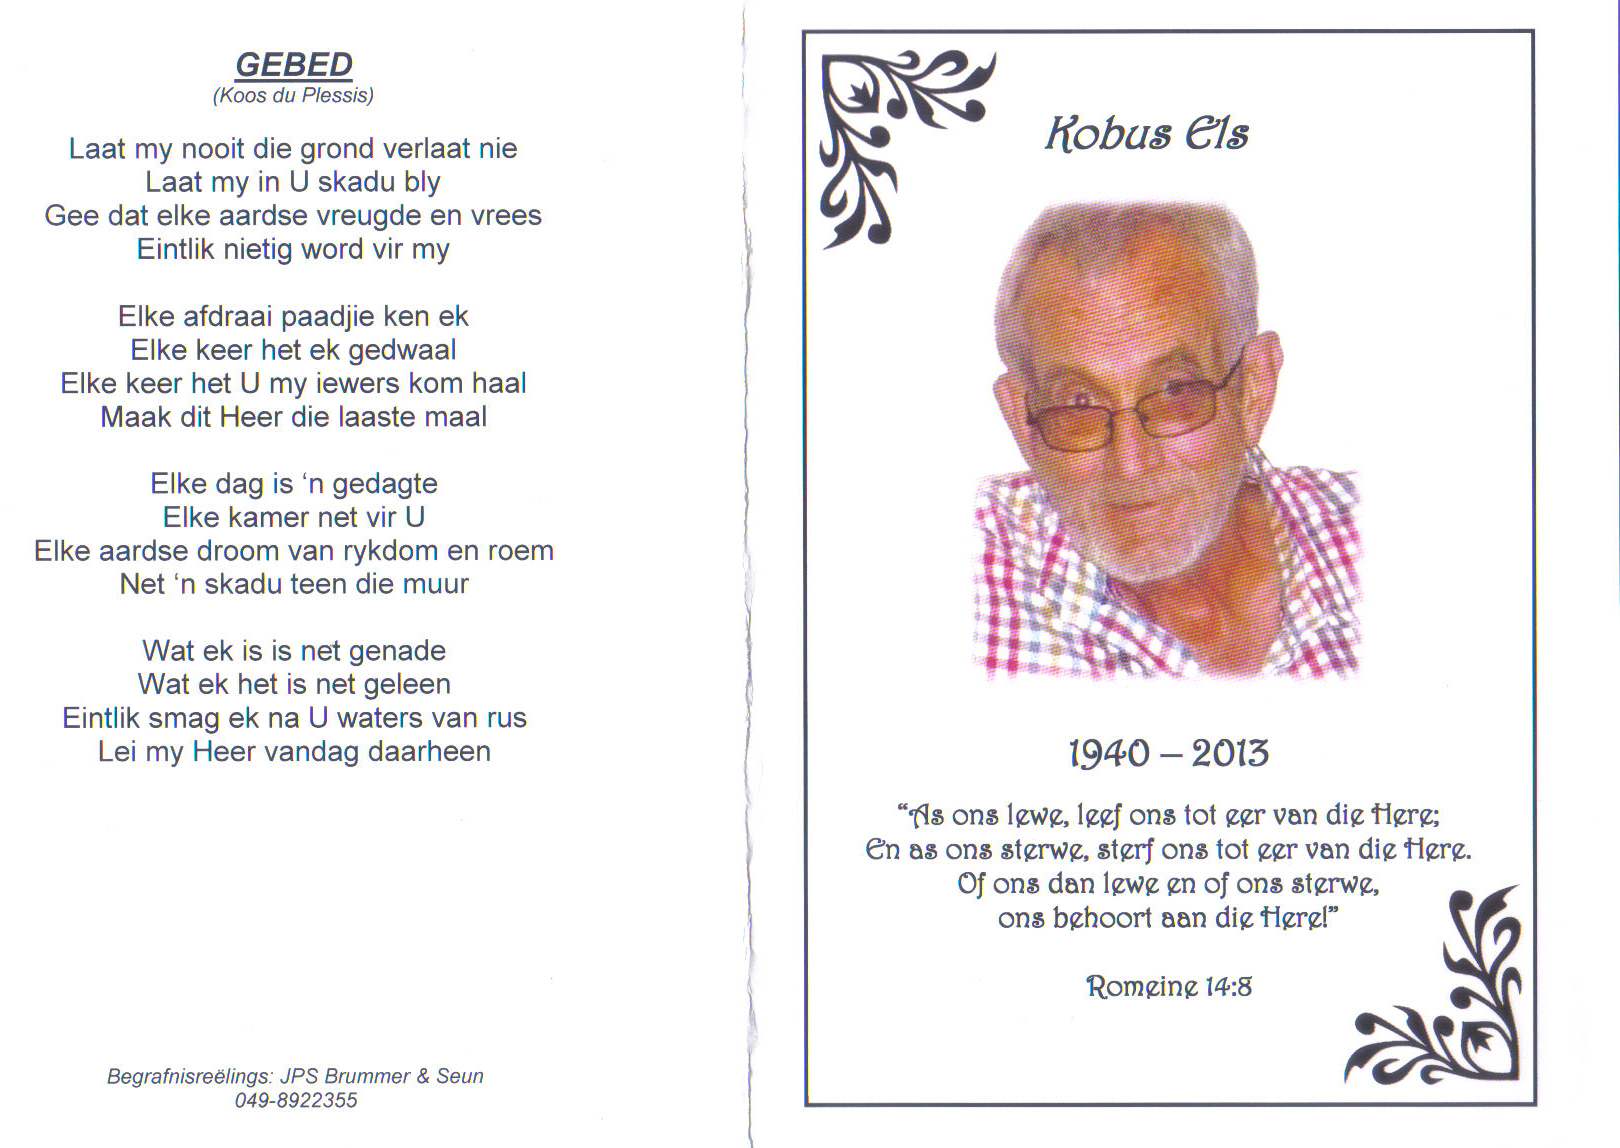 GEBED
(Koos du Plessis)
Laat my nooit die grond verlaat nie
Laat my in U skadu bly
Gee dat elke aardse vreugde en vrees
Eintlik nietig word vir my
Elke afdraai paadjie ken ek
Elke keer het ek gedwaal
Elke keer het U my iewers kom haal
Maak dit Heer die laaste maal
Elke dag is ‘n gedagte
Elke kamer net vir U
Elke aardse droom van rykdom en roem
Net ‘n skadu teen die muur
Wat ek is is net genade
Wat ek het is net geleen
Eintlik smag ek na U waters van rus
Lei my Heer vandag daarheen
Begrafnisreëlings: JPS Brummer & Seun
049-8922355
Kobus Els
1940 – 2013
“As ons lewe, leef ons tot eer van die Here;
En as ons sterwe, sterf ons tot eer van die Here.
Of ons dan lewe en of ons sterwe,
ons behoort aan die Here!”
Romeine 14:8